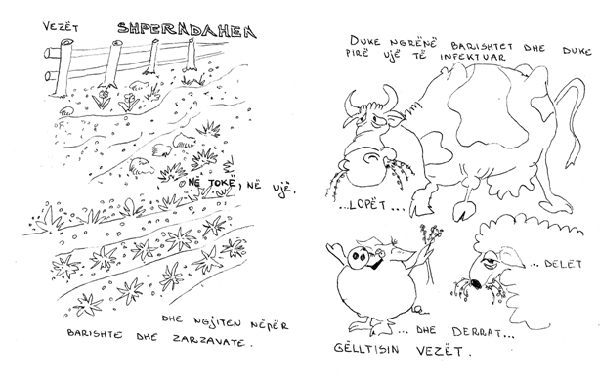 VEZËT SHPERNDAHEN
NË TOKË, NË UJË.
DHE NGJITEN NËPËR
BARISHTE DHE ZARZAVATE.
DUKE NGRËNË BARISHTET DHE DUKE
PIRË UJË TË INFEKTUAR
...LOPËT...
...DELET
...DHE DERRAT...
GËLLTISIN VEZËT.